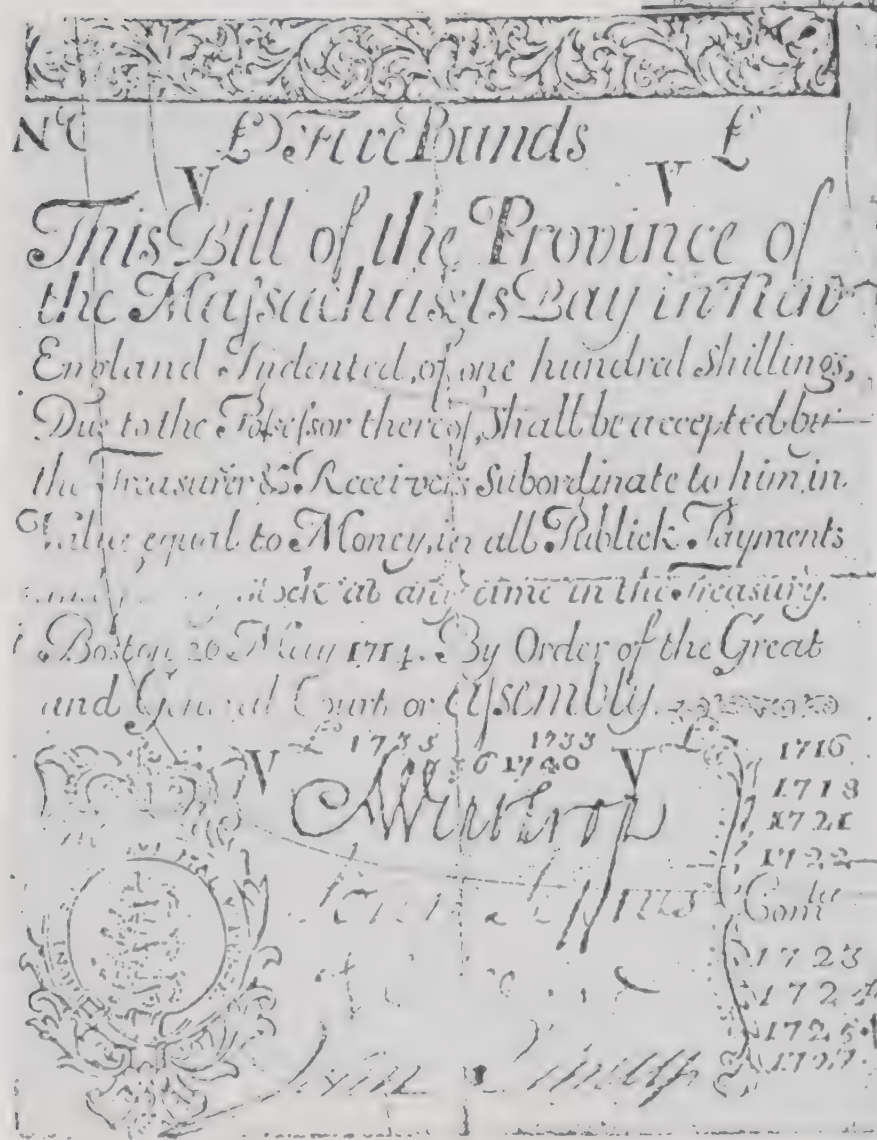 No £ Five Pounds £
V V
This Bill of the Province of
the Maſsachusets Bay in New
England Indented, of one hundred Shillings,
Due to the Poſseſsor thereof, Shall be accepted by
the Treasurer & Receivers Subordinate to him, in
Value equal to Money, in all Publick Payments
Stock at any time in the Treasury.
Boston 26 May 1714. By Order of the Great
and General Court or Aſsembly.
V £ 1733 V £
6 1740
1716
1718
1721
1722
Comtee
1723
1724
1725
1727
Winthrop